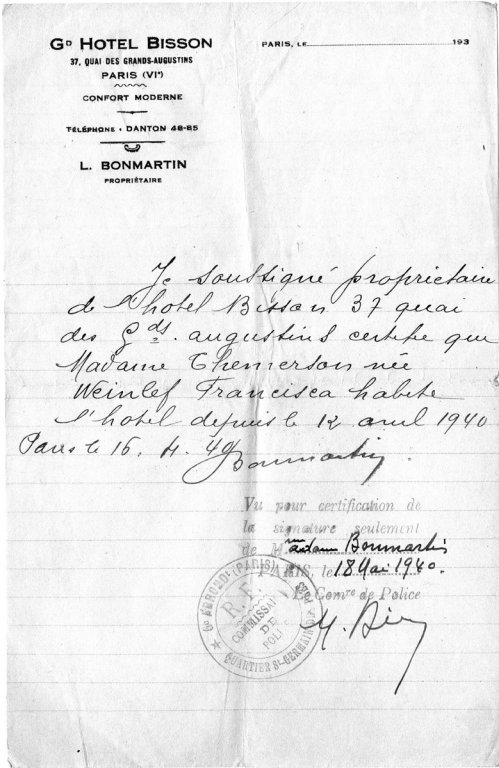 Gᴰ HOTEL BISSON
37, QUAI DES GRANDS-AUGUSTINS
PARIS (VIᵉ)
CONFORT MODERNE
TÉLÉPHONE : DANTON 48-85
L. BONMARTIN
PROPRIÉTAIRE
PARIS, LE 193
Je soussigné propriétaire
de l'hotel Bisson 37 quai
des Gds. augustins certifie que
Madame Themerson née
Weinles Francisca habite
l'hotel depuis le 12 avril 1940
Paris le 16. 4. 40
Bonmartin
Vu pour certification de
la signature seulement
de Madame Bonmartin
PARIS, le 18 Mai 1940.
Le Comʳᵉ de Police
6ᵉ ARRONDᵗ (PARIS)
R.F.
COMMISSAIRE
DE
POLICE
QUARTIER Sᵗ GERMAIN